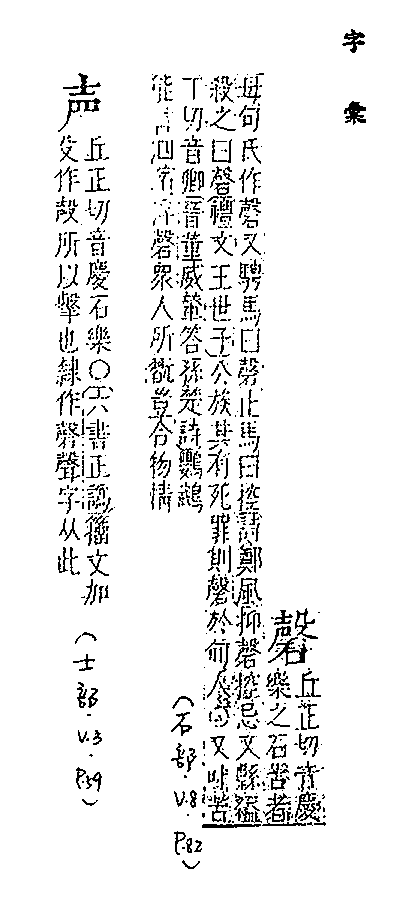 字彙
磬
丘正切音慶
樂之石古者
母句氏作磬又騁馬曰磬止馬曰控詩鄭風抑磬控忌又縣縊
殺之曰磬禮文王世子公族其有死罪則磬於甸人又叶苦
丁切音卿晉董威輦答孫楚詩鸚鵡
能言泗濱浮磬眾人所翫豈合物情
(石部.V.8.P.82)
声
丘正切音慶石樂○六書正譌籀文加
殳作殸所以擊也隸作磬聲字从此
(士部.V.3.P.59)